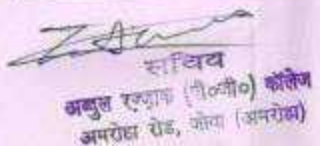 सचिव
अब्दुल रज्जाक (पी०जी०) कॉलेज
अमरोहा रोड, जोया (अमरोहा)